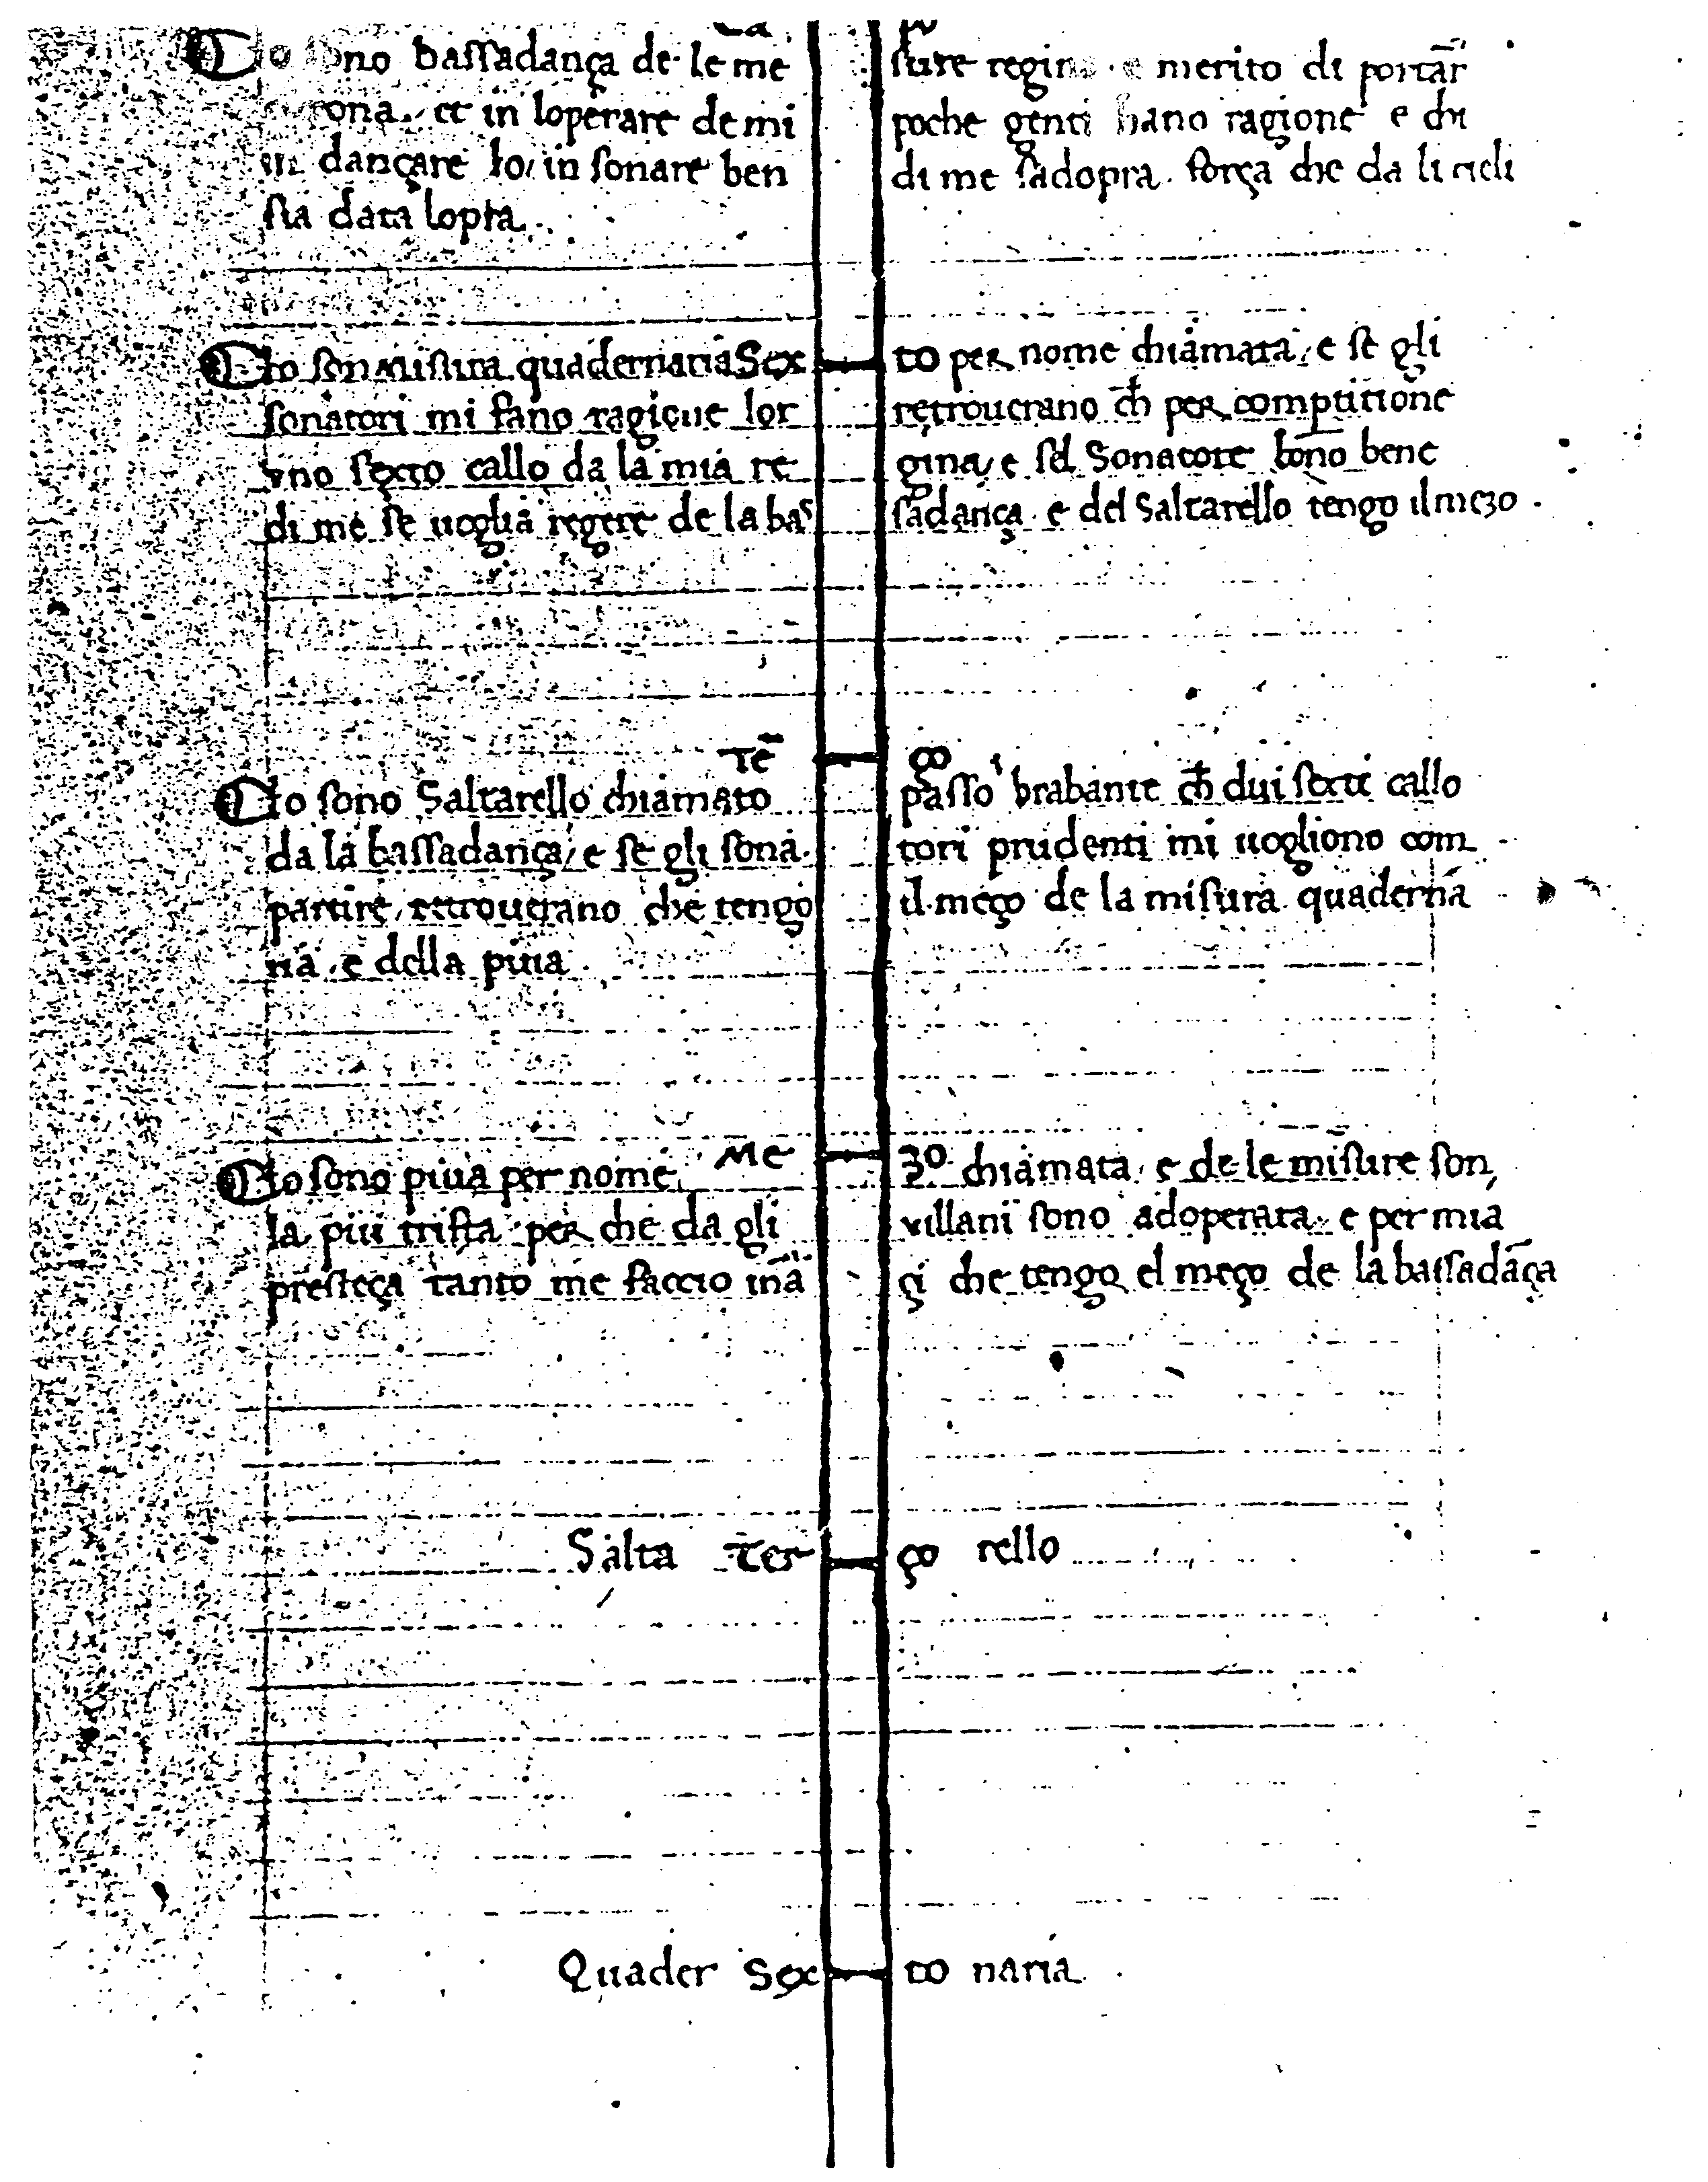 Ca po
Io sono bassadança de le me sure regina e merito di portar̄
corona. et in loperare de mi poche genti hano ragione e chi
in dançare lo, in sonare ben di me sadopra. força che da li cieli
sia data lopra.
Io son misura quadernaria Sex to per nome chiamata, e se gli
sonatori mi fano ragione lor retroverano ch̄ per comptitione
uno sexto callo da la mia re gina, e sel Sonatore bono bene
di me se uoglia regere de la bas sadança e del Saltarello tengo il mezo.
Te̅ ço
Io sono Saltarello chiamato passo brabante ch̄ dui sexti callo
da la bassadança, e se gli sona tori prudenti mi uogliono com
partire, retrouerano che tengo il meço de la misura quaderna
ria. e della piua.
Me zo
Io sono piua per nome chiamata, e de le misure son
la piu trista per che da gli villani sono adoperata. e per mia
presteça tanto me faccio ina̅ çi che tengo el meço de la bassada̅ça
Salta Ter ço rello
Quader Sex to naria.